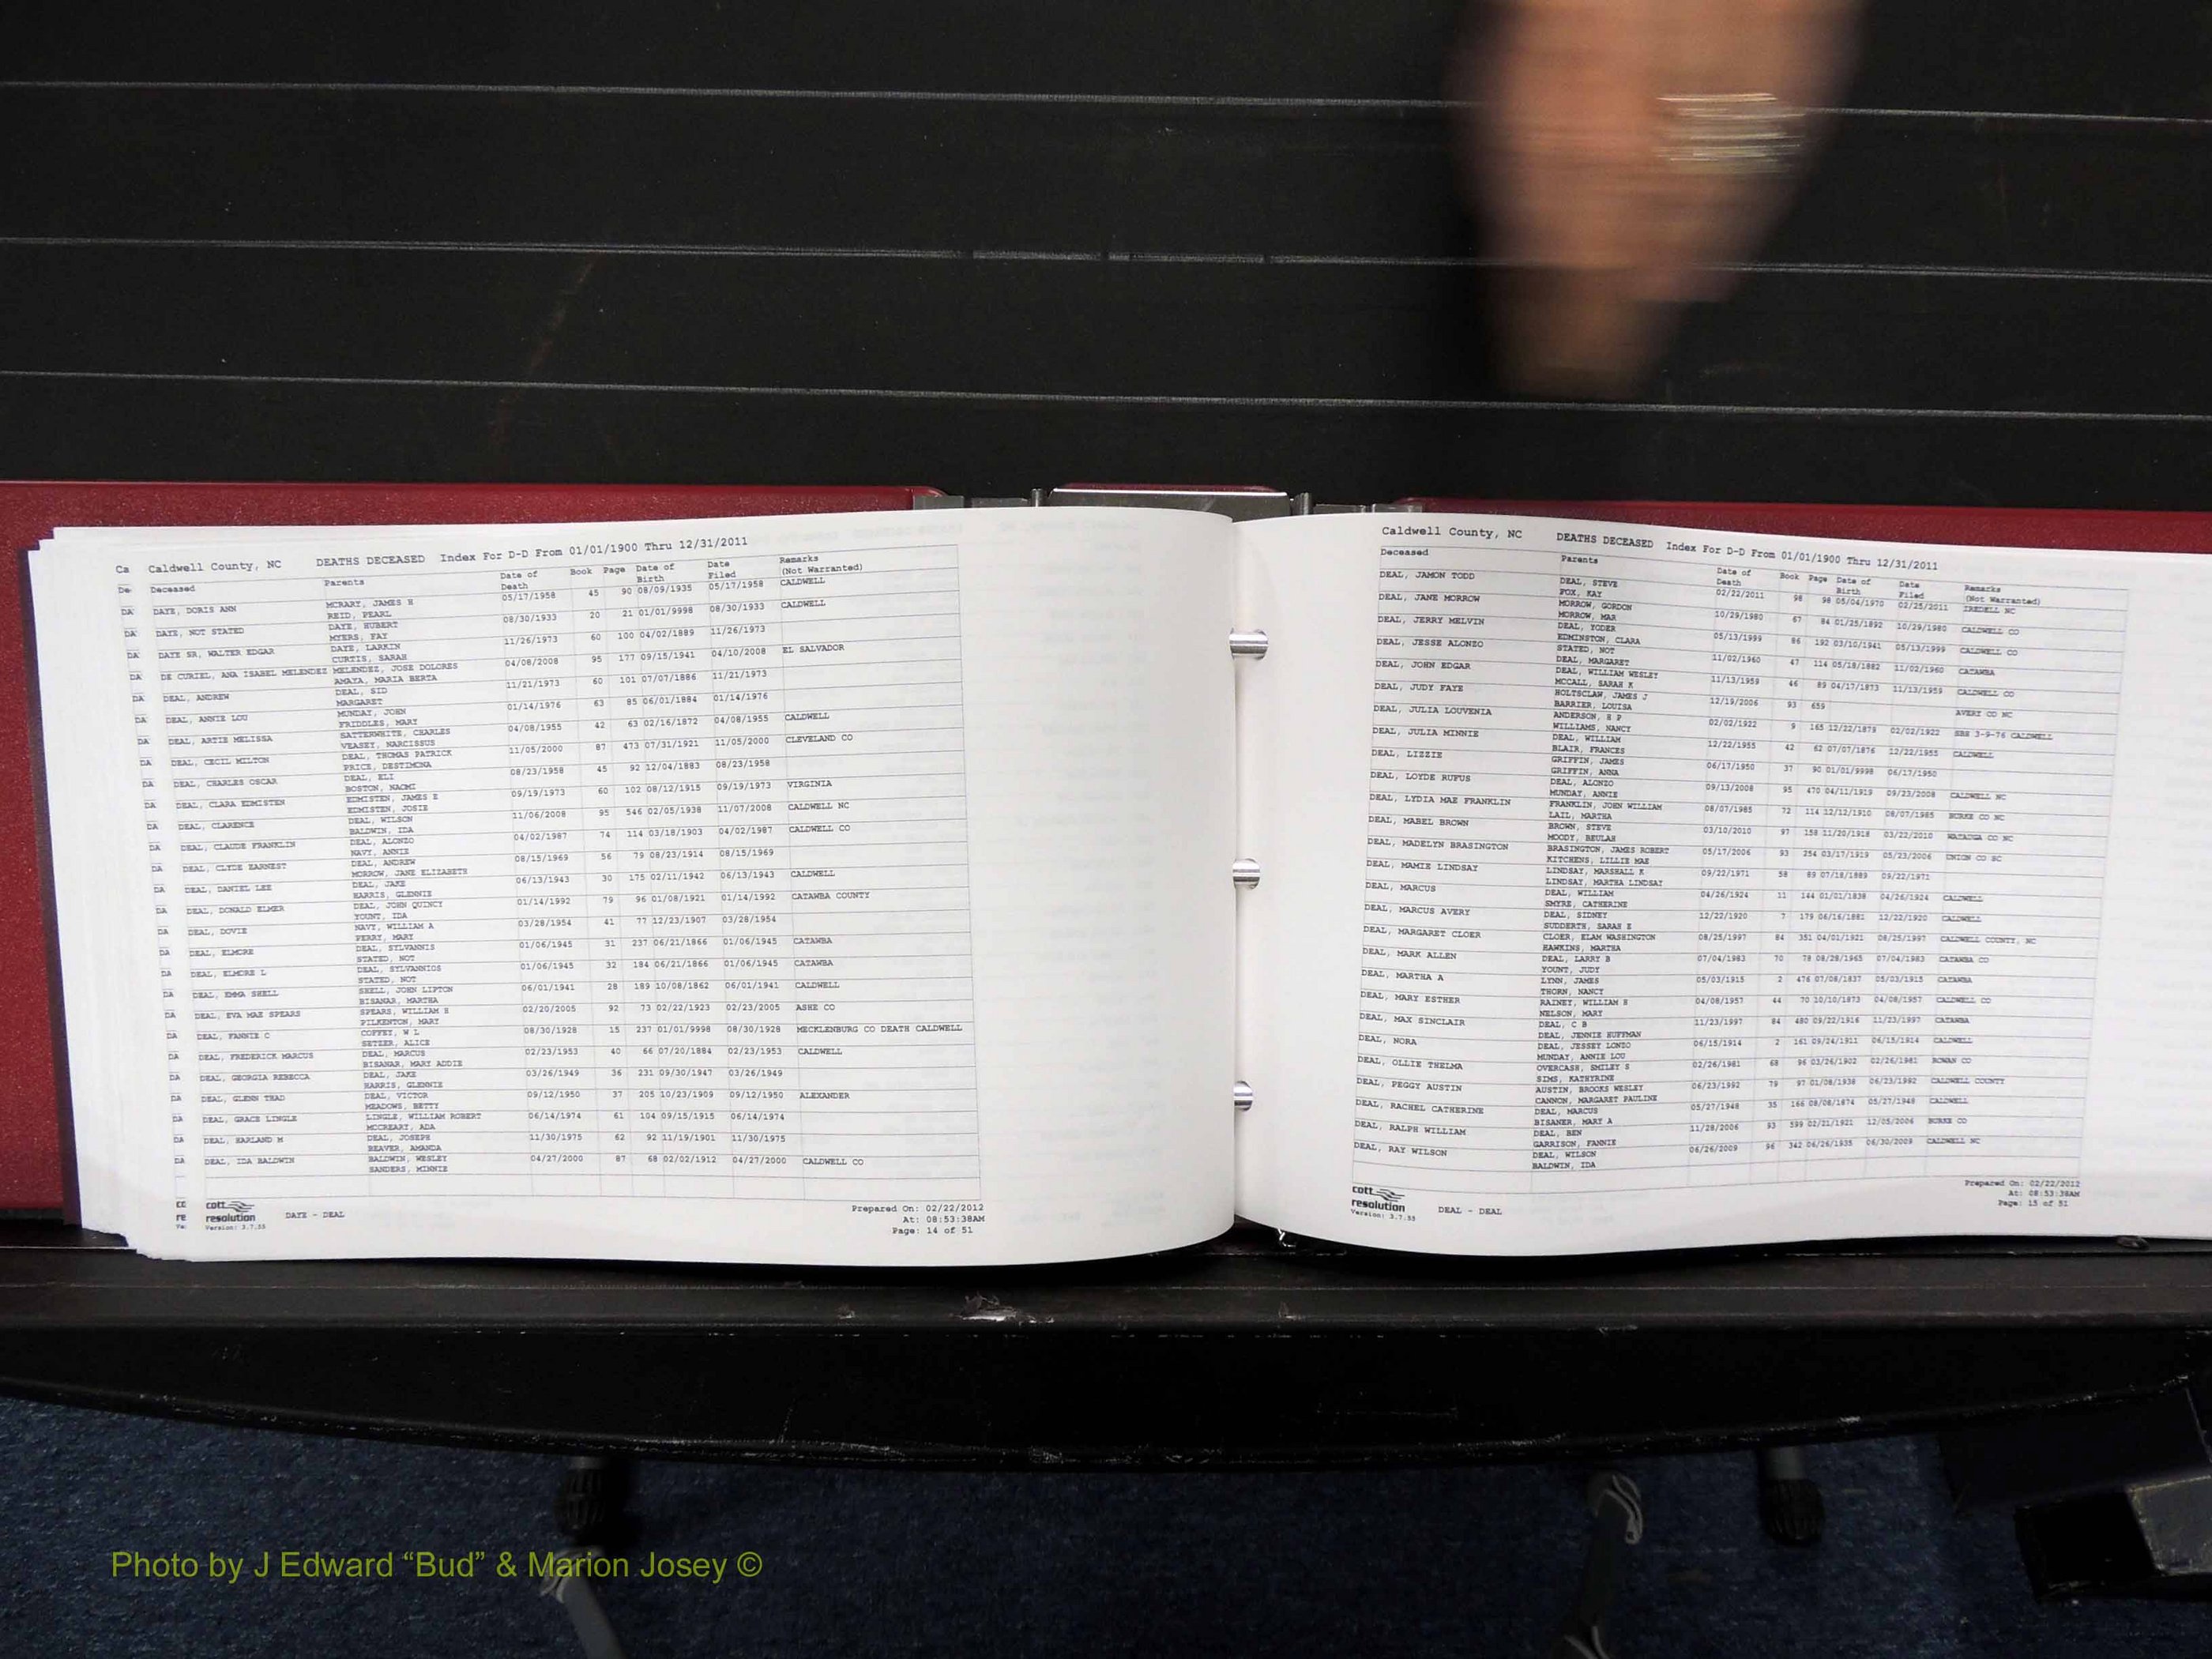 Ca Caldwell County, NC DEATHS DECEASED Index For D-D From 01/01/1900 Thru 12/31/2011
De Deceased Parents Date of Death Book Page Date of Birth Date Filed Remarks (Not Warranted)
DA DAYE, DORIS ANN MCRARY, JAMES H 05/17/1958 45 90 08/09/1935 05/17/1958 CALDWELL
REID, PEARL
DA DAYE, NOT STATED DAYE, HUBERT 08/30/1933 20 21 01/01/9998 08/30/1933 CALDWELL
MYERS, FAY
DA DAYE SR, WALTER EDGAR DAYE, LARKIN 11/26/1973 60 100 04/02/1889 11/26/1973
CURTIS, SARAH
DA DE CURIEL, ANA ISABEL MELENDEZ MELENDEZ, JOSE DOLORES 04/08/2008 95 177 09/15/1941 04/10/2008 EL SALVADOR
AMAYA, MARIA BERTA
DA DEAL, ANDREW DEAL, SID 11/21/1973 60 101 07/07/1886 11/21/1973
MARGARET
DA DEAL, ANNIE LOU MUNDAY, JOHN 01/14/1976 63 85 06/01/1884 01/14/1976
FRIDDLES, MARY
DA DEAL, ARTIE MELISSA SATTERWHITE, CHARLES 04/08/1955 42 63 02/16/1872 04/08/1955 CALDWELL
VEASEY, NARCISSUS
DA DEAL, CECIL MILTON DEAL, THOMAS PATRICK 11/05/2000 87 473 07/31/1921 11/05/2000 CLEVELAND CO
PRICE, DESTIMONA
DA DEAL, CHARLES OSCAR DEAL, ELI 08/23/1958 45 92 12/04/1883 08/23/1958
BOSTON, NAOMI
DA DEAL, CLARA EDMISTEN EDMISTEN, JAMES E 09/19/1973 60 102 08/12/1915 09/19/1973 VIRGINIA
EDMISTEN, JOSIE
DA DEAL, CLARENCE DEAL, WILSON 11/06/2008 95 546 02/05/1938 11/07/2008 CALDWELL NC
BALDWIN, IDA
DA DEAL, CLAUDE FRANKLIN DEAL, ALONZO 04/02/1987 74 114 03/18/1903 04/02/1987 CALDWELL CO
NAVY, ANNIE
DA DEAL, CLYDE EARNEST DEAL, ANDREW 08/15/1969 56 79 08/23/1914 08/15/1969
MORROW, JANE ELIZABETH
DA DEAL, DANIEL LEE DEAL, JAKE 06/13/1943 30 175 02/11/1942 06/13/1943 CALDWELL
HARRIS, GLENNIE
DA DEAL, DONALD ELMER DEAL, JOHN QUINCY 01/14/1992 79 96 01/08/1921 01/14/1992 CATAWBA COUNTY
YOUNT, IDA
DA DEAL, DOVIE NAVY, WILLIAM A 03/28/1954 41 77 12/23/1907 03/28/1954
PERRY, MARY
DA DEAL, ELMORE DEAL, SYLVANNIS 01/06/1945 31 237 06/21/1866 01/06/1945 CATAWBA
STATED, NOT
DA DEAL, ELMORE L DEAL, SYLVANNIOS 01/06/1945 32 184 06/21/1866 01/06/1945 CATAWBA
STATED, NOT
DA DEAL, EMMA SHELL SHELL, JOHN LIPTON 06/01/1941 28 189 10/08/1862 06/01/1941 CALDWELL
BISANAR, MARTHA
DA DEAL, EVA MAE SPEARS SPEARS, WILLIAM H 02/20/2005 92 73 02/22/1923 02/23/2005 ASHE CO
PILKENTON, MARY
DA DEAL, FANNIE C COFFEY, W L 08/30/1928 15 237 01/01/9998 08/30/1928 MECKLENBURG CO DEATH CALDWELL
SETZER, ALICE
DA DEAL, FREDERICK MARCUS DEAL, MARCUS 02/23/1953 40 66 07/20/1884 02/23/1953 CALDWELL
BISANAR, MARY ADDIE
DA DEAL, GEORGIA REBECCA DEAL, JAKE 03/26/1949 36 231 09/30/1947 03/26/1949
HARRIS, GLENNIE
DA DEAL, GLENN THAD DEAL, VICTOR 09/12/1950 37 205 10/23/1909 09/12/1950 ALEXANDER
MEADOWS, BETTY
DA DEAL, GRACE LINGLE LINGLE, WILLIAM ROBERT 06/14/1974 61 104 09/15/1915 06/14/1974
MCCREARY, ADA
DA DEAL, HARLAND M DEAL, JOSEPH 11/30/1975 62 92 11/19/1901 11/30/1975
BEAVER, AMANDA
DA DEAL, IDA BALDWIN BALDWIN, WESLEY 04/27/2000 87 68 02/02/1912 04/27/2000 CALDWELL CO
SANDERS, MINNIE
cott
resolution
Version: 3.7.55
DAYE - DEAL
Prepared On: 02/22/2012
At: 08:53:38AM
Page: 14 of 51
Caldwell County, NC DEATHS DECEASED Index For D-D From 01/01/1900 Thru 12/31/2011
Deceased Parents Date of Death Book Page Date of Birth Date Filed Remarks (Not Warranted)
DEAL, JAMON TODD DEAL, STEVE 02/22/2011 98 98 05/04/1970 02/25/2011 IREDELL NC
FOX, KAY
DEAL, JANE MORROW MORROW, GORDON 10/29/1980 67 84 01/25/1892 10/29/1980 CALDWELL CO
MORROW, MAR
DEAL, JERRY MELVIN DEAL, YODER 05/13/1999 86 192 03/10/1941 05/13/1999 CALDWELL CO
EDMINSTON, CLARA
DEAL, JESSE ALONZO STATED, NOT 11/02/1960 47 114 05/18/1882 11/02/1960 CATAWBA
DEAL, MARGARET
DEAL, JOHN EDGAR DEAL, WILLIAM WESLEY 11/13/1959 46 89 04/17/1873 11/13/1959 CALDWELL CO
MCCALL, SARAH K
DEAL, JUDY FAYE HOLTSCLAW, JAMES J 12/19/2006 93 659 AVERY CO NC
BARRIER, LOUISA
DEAL, JULIA LOUVENIA ANDERSON, H P 02/02/1922 9 165 12/22/1879 02/02/1922 SBH 3-9-76 CALDWELL
WILLIAMS, NANCY
DEAL, JULIA MINNIE DEAL, WILLIAM 12/22/1955 42 62 07/07/1876 12/22/1955 CALDWELL
BLAIR, FRANCES
DEAL, LIZZIE GRIFFIN, JAMES 06/17/1950 37 90 01/01/9998 06/17/1950
GRIFFIN, ANNA
DEAL, LOYDE RUFUS DEAL, ALONZO 09/13/2008 95 470 04/11/1919 09/23/2008 CALDWELL NC
MUNDAY, ANNIE
DEAL, LYDIA MAE FRANKLIN FRANKLIN, JOHN WILLIAM 08/07/1985 72 114 12/12/1910 08/07/1985 BURKE CO NC
LAIL, MARTHA
DEAL, MABEL BROWN BROWN, STEVE 03/10/2010 97 158 11/20/1918 03/22/2010 WATAUGA CO NC
MOODY, BEULAH
DEAL, MADELYN BRASINGTON BRASINGTON, JAMES ROBERT 05/17/2006 93 254 03/17/1919 05/23/2006 UNION CO SC
KITCHENS, LILLIE MAE
DEAL, MAMIE LINDSAY LINDSAY, MARSHALL K 09/22/1971 58 89 07/18/1889 09/22/1971
LINDSAY, MARTHA LINDSAY
DEAL, MARCUS DEAL, WILLIAM 04/26/1924 11 144 01/01/1838 04/26/1924 CALDWELL
SMYRE, CATHERINE
DEAL, MARCUS AVERY DEAL, SIDNEY 12/22/1920 7 179 06/16/1881 12/22/1920 CALDWELL
SUDDERTH, SARAH E
DEAL, MARGARET CLOER CLOER, ELAM WASHINGTON 08/25/1997 84 351 04/01/1921 08/25/1997 CALDWELL COUNTY, NC
HAWKINS, MARTHA
DEAL, MARK ALLEN DEAL, LARRY B 07/04/1983 70 78 08/28/1965 07/04/1983 CATAWBA CO
YOUNT, JUDY
DEAL, MARTHA A LYNN, JAMES 05/03/1915 2 476 07/08/1837 05/03/1915 CATAWBA
THORN, NANCY
DEAL, MARY ESTHER RAINEY, WILLIAM H 04/08/1957 44 70 10/10/1873 04/08/1957 CALDWELL CO
NELSON, MARY
DEAL, MAX SINCLAIR DEAL, C B 11/23/1997 84 480 09/22/1916 11/23/1997 CATAWBA
DEAL, JENNIE HUFFMAN
DEAL, NORA DEAL, JESSEY LONZO 06/15/1914 2 161 09/24/1911 06/15/1914 CALDWELL
MUNDAY, ANNIE LOU
DEAL, OLLIE THELMA OVERCASH, SMILEY S 02/26/1981 68 96 03/26/1902 02/26/1981 ROWAN CO
SIMS, KATHYRINE
DEAL, PEGGY AUSTIN AUSTIN, BROOKS WESLEY 06/23/1992 79 97 01/08/1938 06/23/1992 CALDWELL COUNTY
CANNON, MARGARET PAULINE
DEAL, RACHEL CATHERINE DEAL, MARCUS 05/27/1948 35 166 08/08/1874 05/27/1948 CALDWELL
BISANER, MARY A
DEAL, RALPH WILLIAM DEAL, BEN 11/28/2006 93 599 02/21/1921 12/05/2006 BURKE CO
GARRISON, FANNIE
DEAL, RAY WILSON DEAL, WILSON 06/26/2009 96 342 06/26/1935 06/30/2009 CALDWELL NC
BALDWIN, IDA
cott
resolution
Version: 3.7.55
DEAL - DEAL
Prepared On: 02/22/2012
At: 08:53:38AM
Page: 15 of 51
Photo by J Edward “Bud” & Marion Josey ©